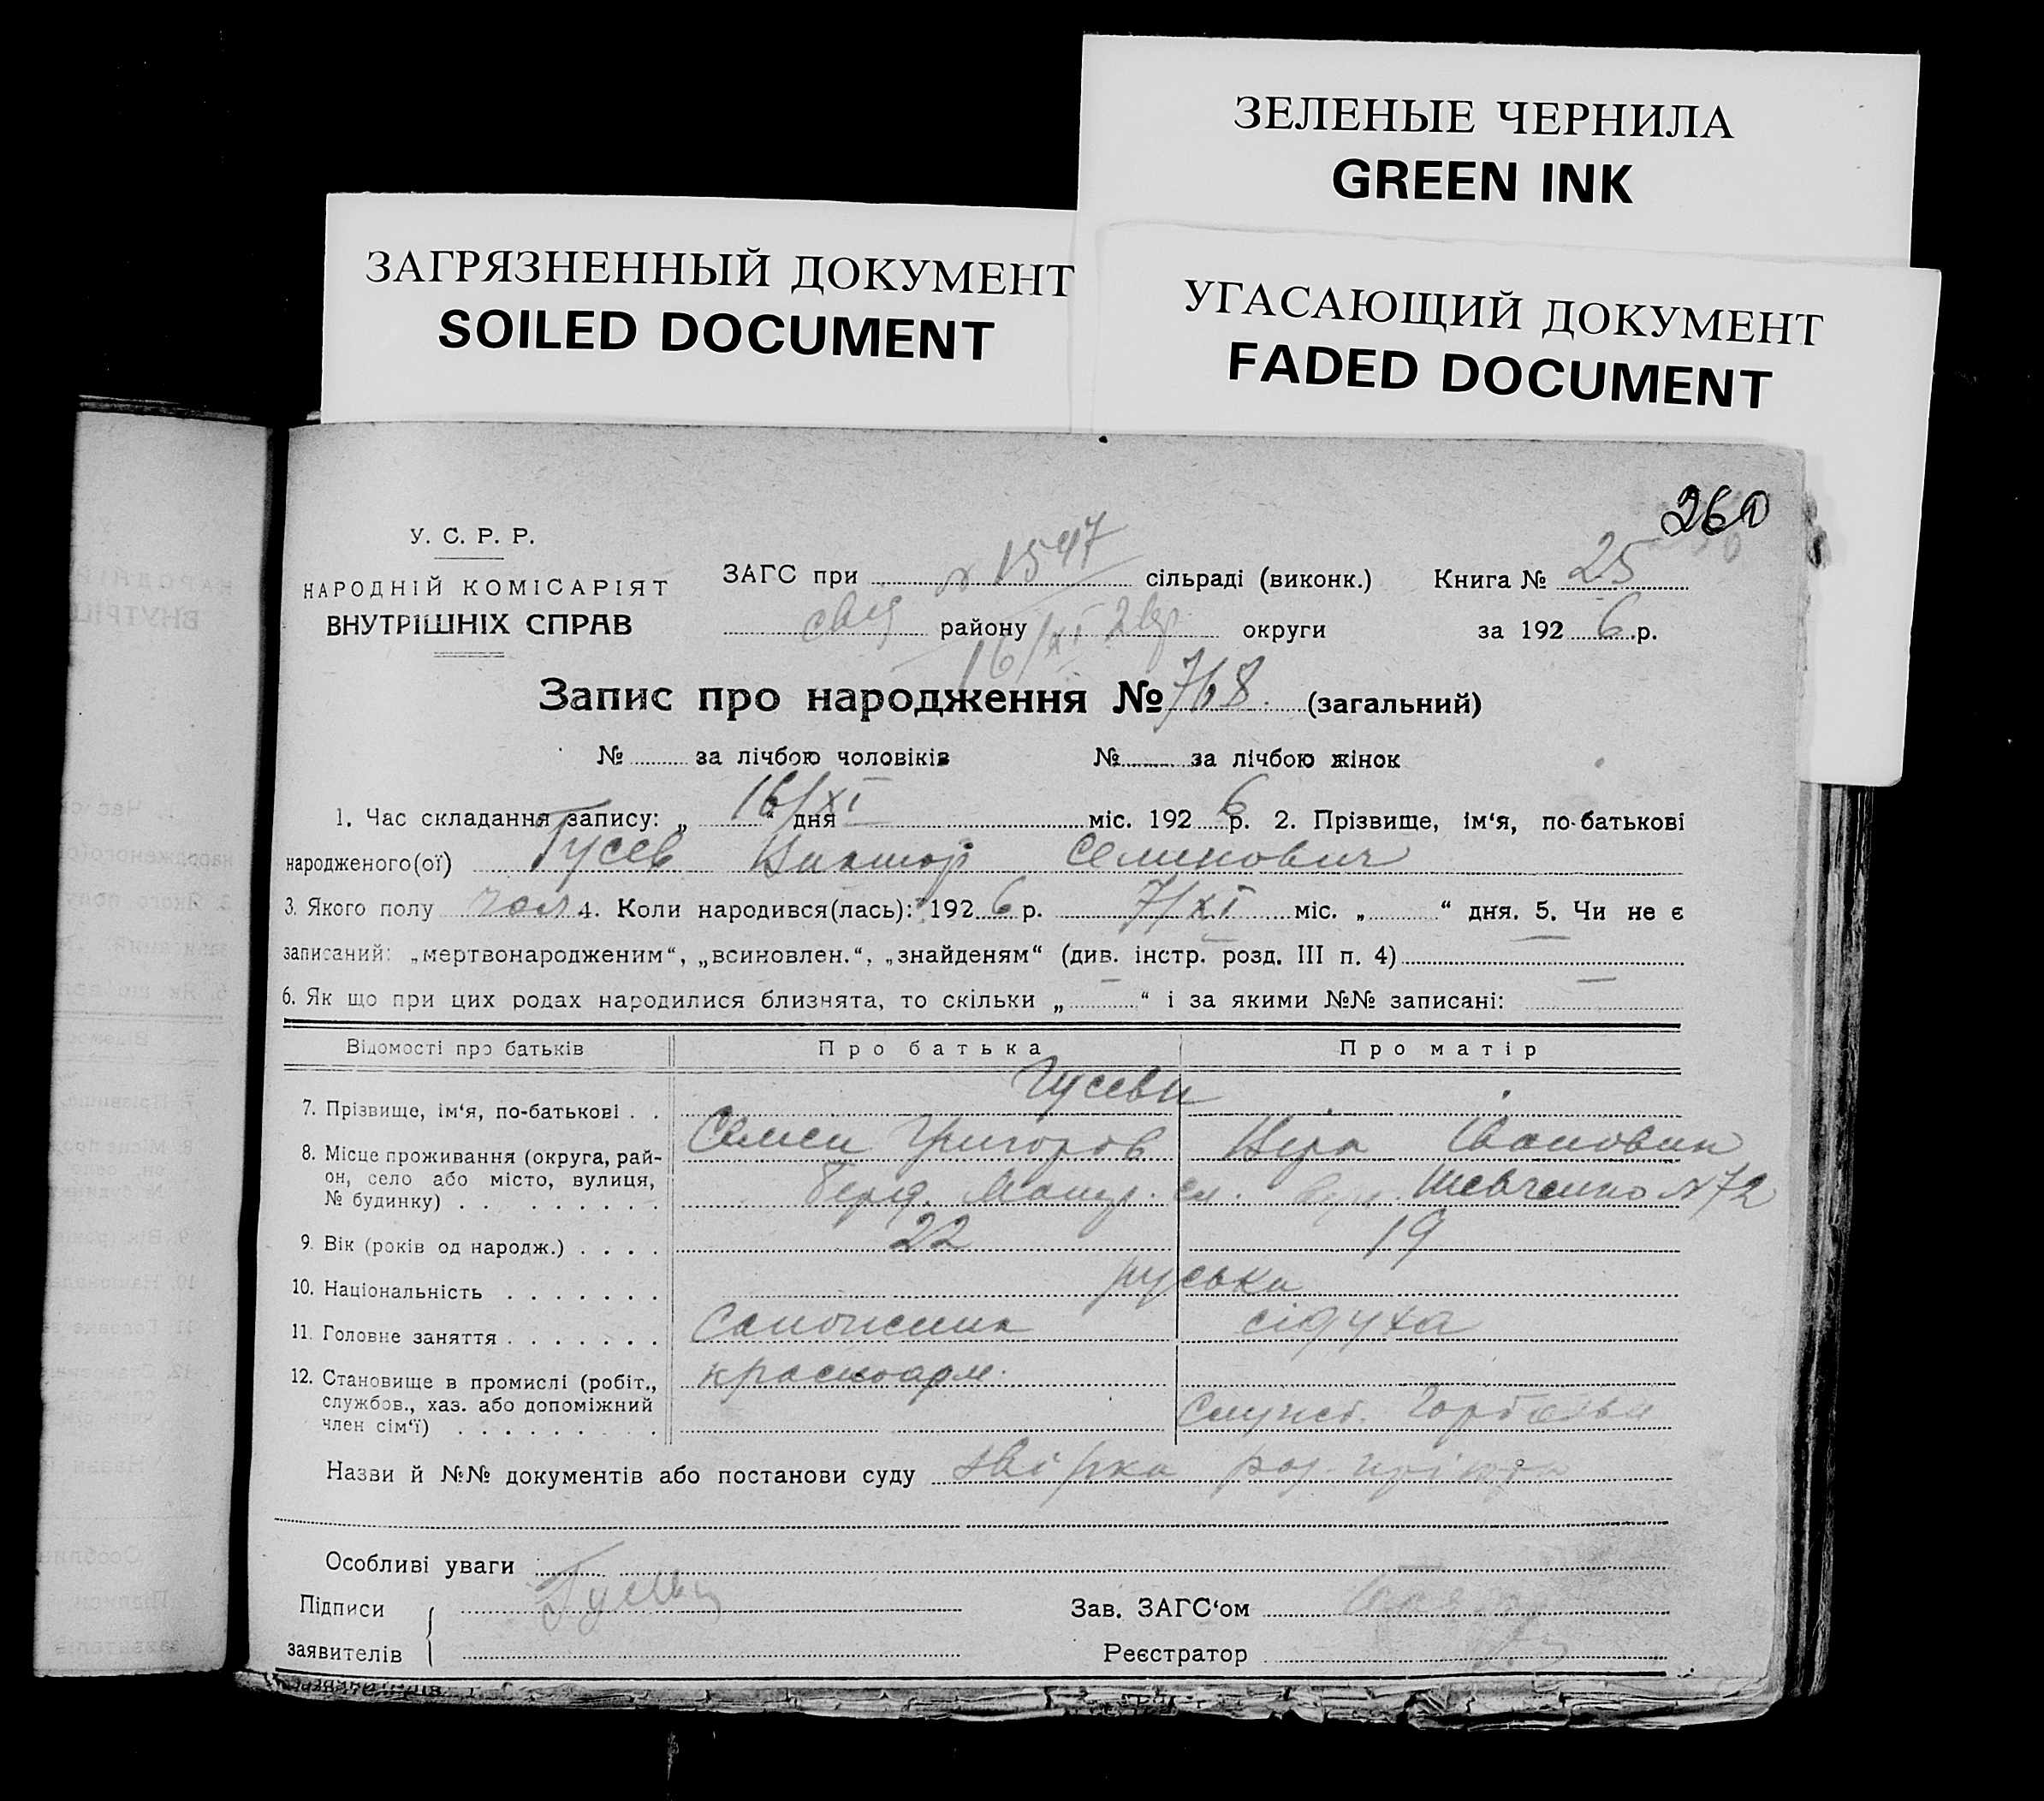 ЗЕЛЕНЫЕ ЧЕРНИЛА
GREEN INK
ЗАГРЯЗНЕННЫЙ ДОКУМЕНТ
SOILED DOCUMENT
УГАСАЮЩИЙ ДОКУМЕНТ
FADED DOCUMENT
260
У. С. Р. Р.
НАРОДНІЙ КОМІСАРІЯТ
ВНУТРІШНІХ СПРАВ
ЗАГС при № 1547 сільраді (виконк.) Книга № 25
свід району 16/XI 2вер. округи за 1926 р.
Запис про народження № 768. (загальний)
№ за лічбою чоловіків № за лічбою жінок
1. Час складання запису: „ 16/XI “ дня міс. 1926 р. 2. Прізвище, ім‘я, по-батькові
народженого(ої) Гусєв Виктор Семенович
3. Якого полу чол 4. Коли народився(лась): 1926 р. 7/XI міс. „ “ дня. 5. Чи не є
записаний: „мертвонародженим“, „всиновлен.“, „знайденям“ (див. інстр. розд. III п. 4) —
6. Як що при цих родах народилися близнята, то скільки „ — “ і за якими №№ записані: —
Відомості про батьків Про батька Про матір
7. Прізвище, ім‘я, по-батькові . . Гусєви
Семен Григоров Віра Івановна
8. Місце проживання (округа, рай-
он, село або місто, вулиця,
№ будинку) . . Берд. Шевченко № 72
9. Вік (років од народж.) . . . . 22 19
10. Національність . . . . . . . руська
11. Головне заняття . . . . . . . Сапожник сідуха
12. Становище в промислі (робіт.,
службов., хаз. або допоміжний
член сім‘ї) . . красноарм.
Назви й №№ документів або постанови суду звірка
Особливі уваги
Підписи
заявителів
Зав. ЗАГС‘ом
Реєстратор